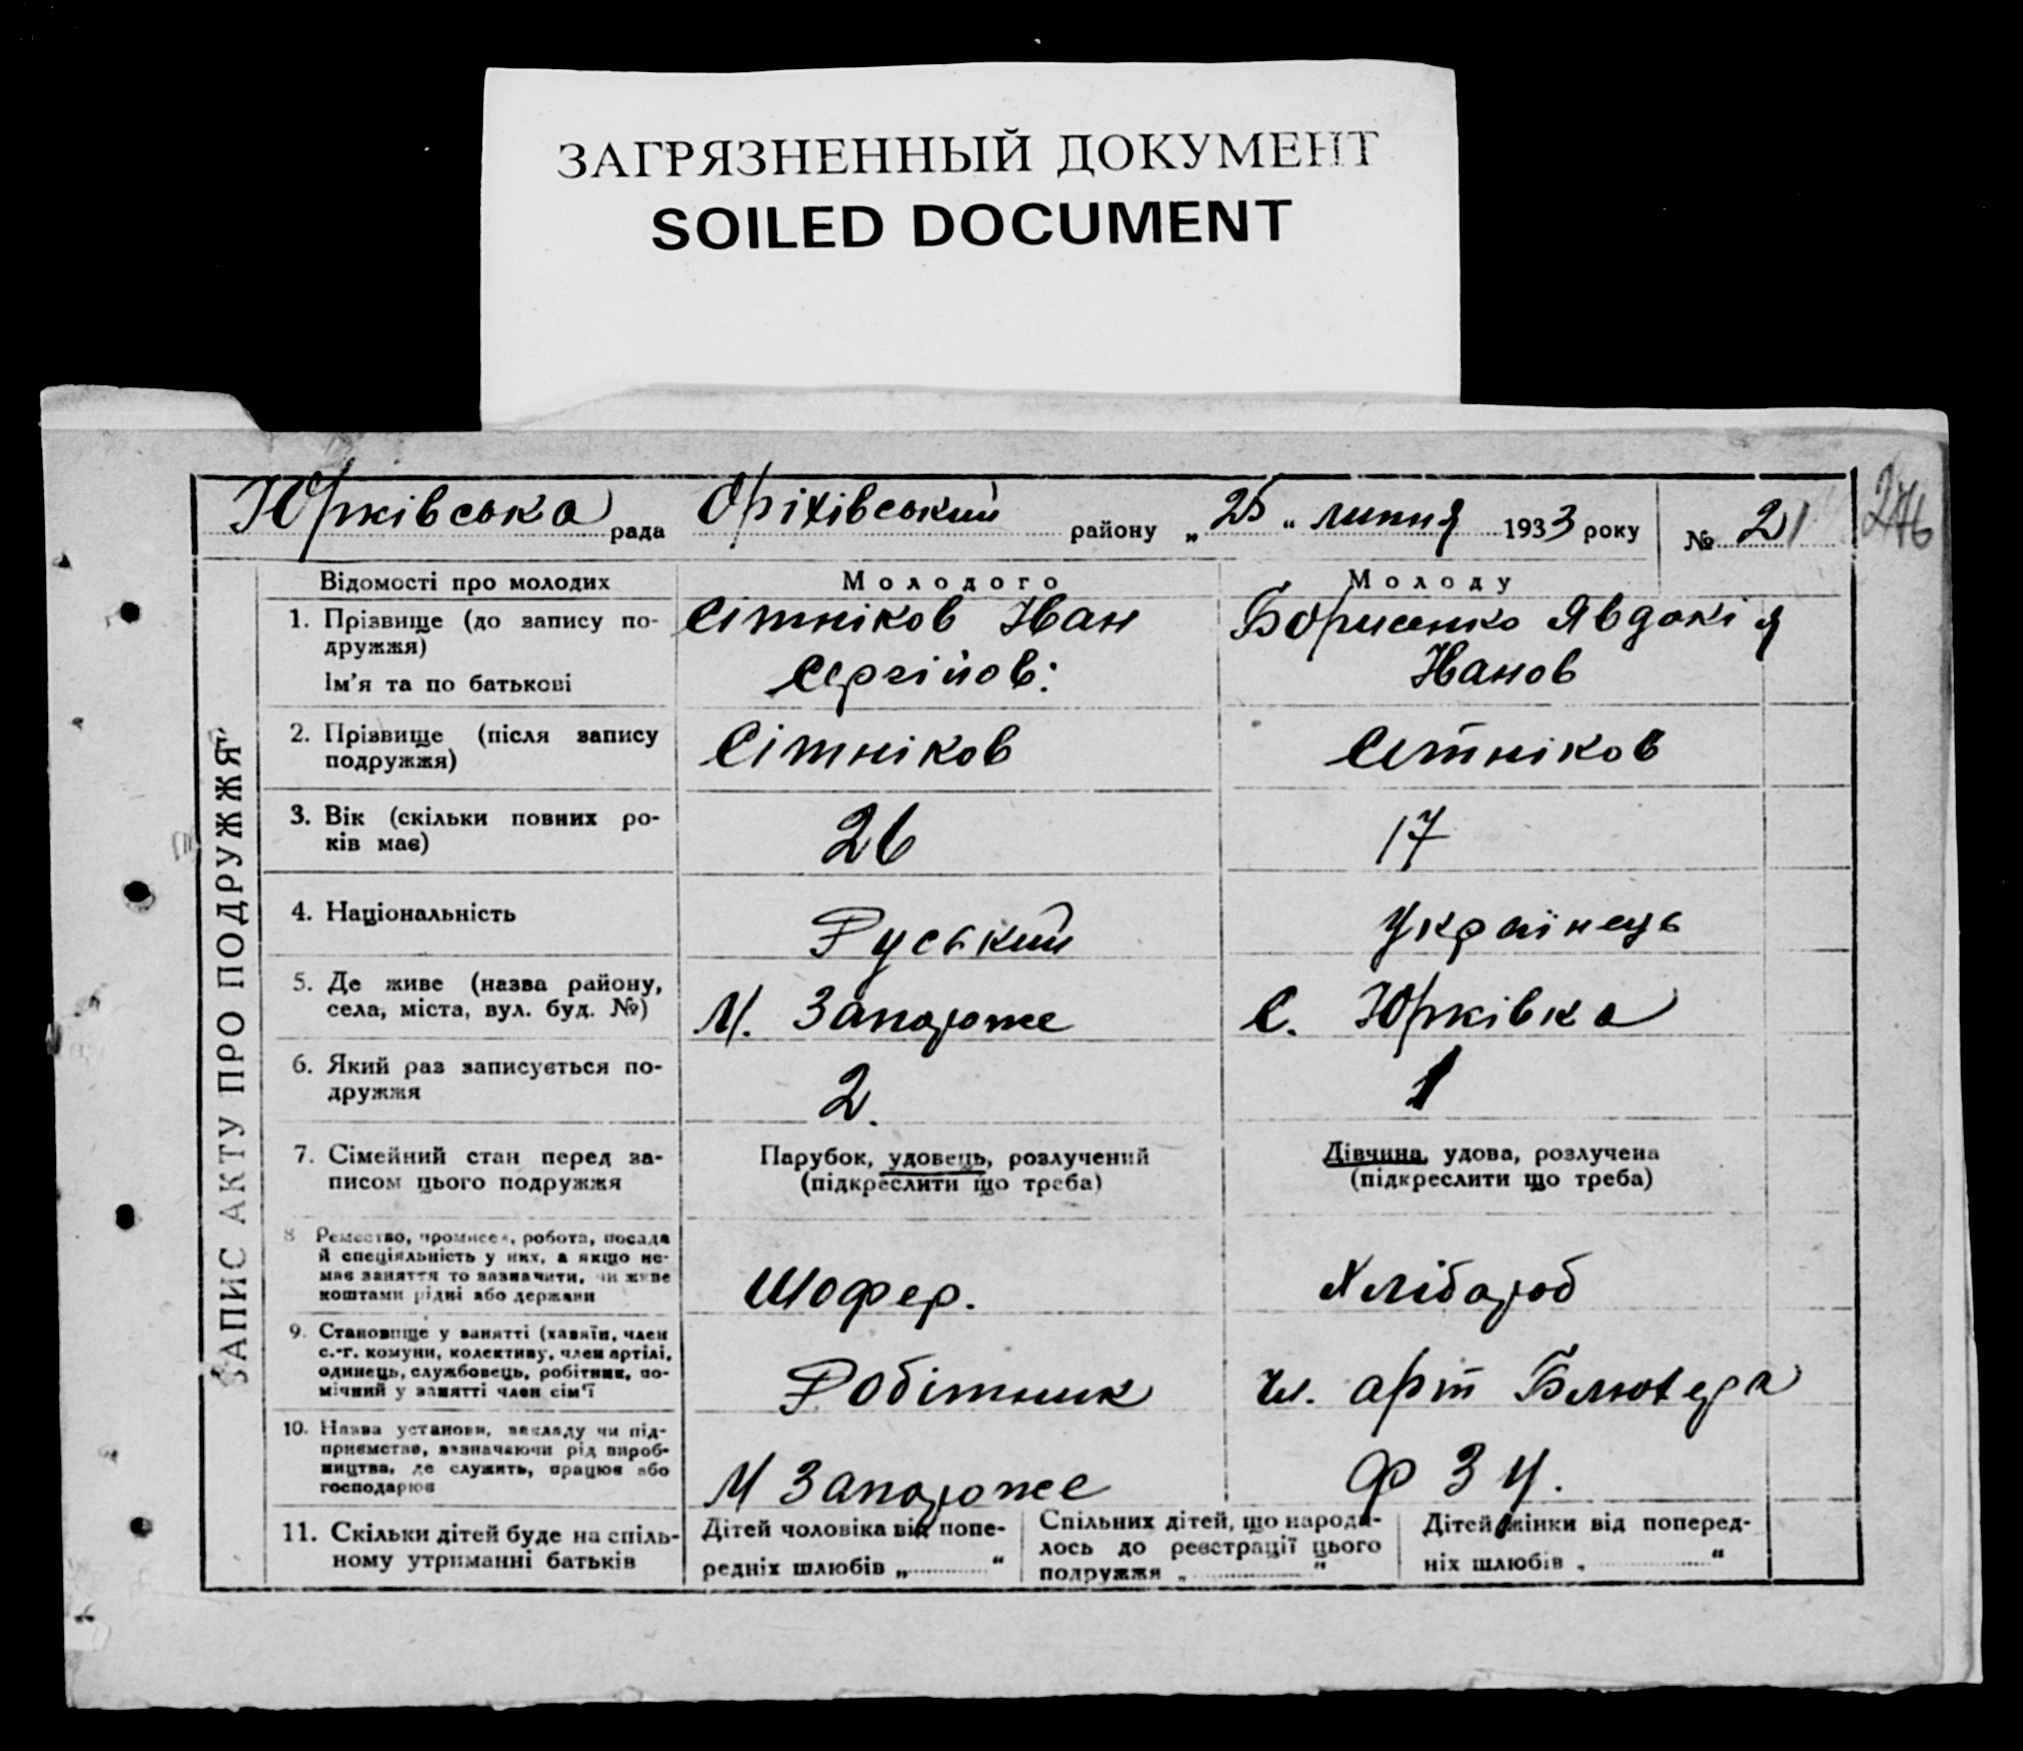 ЗАГРЯЗНЕННЫЙ ДОКУМЕНТ
SOILED DOCUMENT
276
Юрківська рада Оріхівський району „25“ липня 1933 року № 21
ЗАПИС АКТУ ПРО ПОДРУЖЖЯ
Відомості про молодих Молодого Молоду
1. Прізвище (до запису по-
дружжя)
Ім'я та по батькові
Сітніков Іван
Сергійов:
Борисенко Явдокія
Іванов
2. Прізвище (після запису
подружжя)
Сітніков
Сітніков
3. Вік (скільки повних ро-
ків має)
26
17
4. Національність
Руський
Українець
5. Де живе (назва району,
села, міста, вул. буд. №)
М. Запоріже
С. Юрківка
6. Який раз записується по-
дружжя
2.
1
7. Сімейний стан перед за-
писом цього подружжя
Парубок, удовець, розлучений
(підкреслити що треба)
Дівчина, удова, розлучена
(підкреслити що треба)
8 Ремество, промисел, робота, посада
й спеціяльність у них, а якщо не-
має заняття то зазначити, чи живе
коштами рідні або держави
Шофер.
Хлібороб
9. Становище у занятті (хазяїн, член
с.-г. комуни, колективу, член артілі,
одинець, службовець, робітник, по-
мічний у занятті член сім'ї
Робітник
чл. арт Блюхера
10. Назва установи, закладу чи під-
приємства, зазначаючи рід вироб-
ництва, де служить, працює або
господарює
М Запоріже
Ф З У.
11. Скільки дітей буде на спіль-
ному утриманні батьків
Дітей чоловіка від попе-
редніх шлюбів „ “
Спільних дітей, що народи-
лось до реєстрації цього
подружжя „ “
Дітей жінки від поперед-
ніх шлюбів „ “